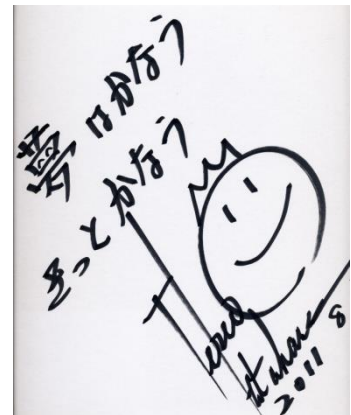 夢はかなう
きっとかなう
2011 8